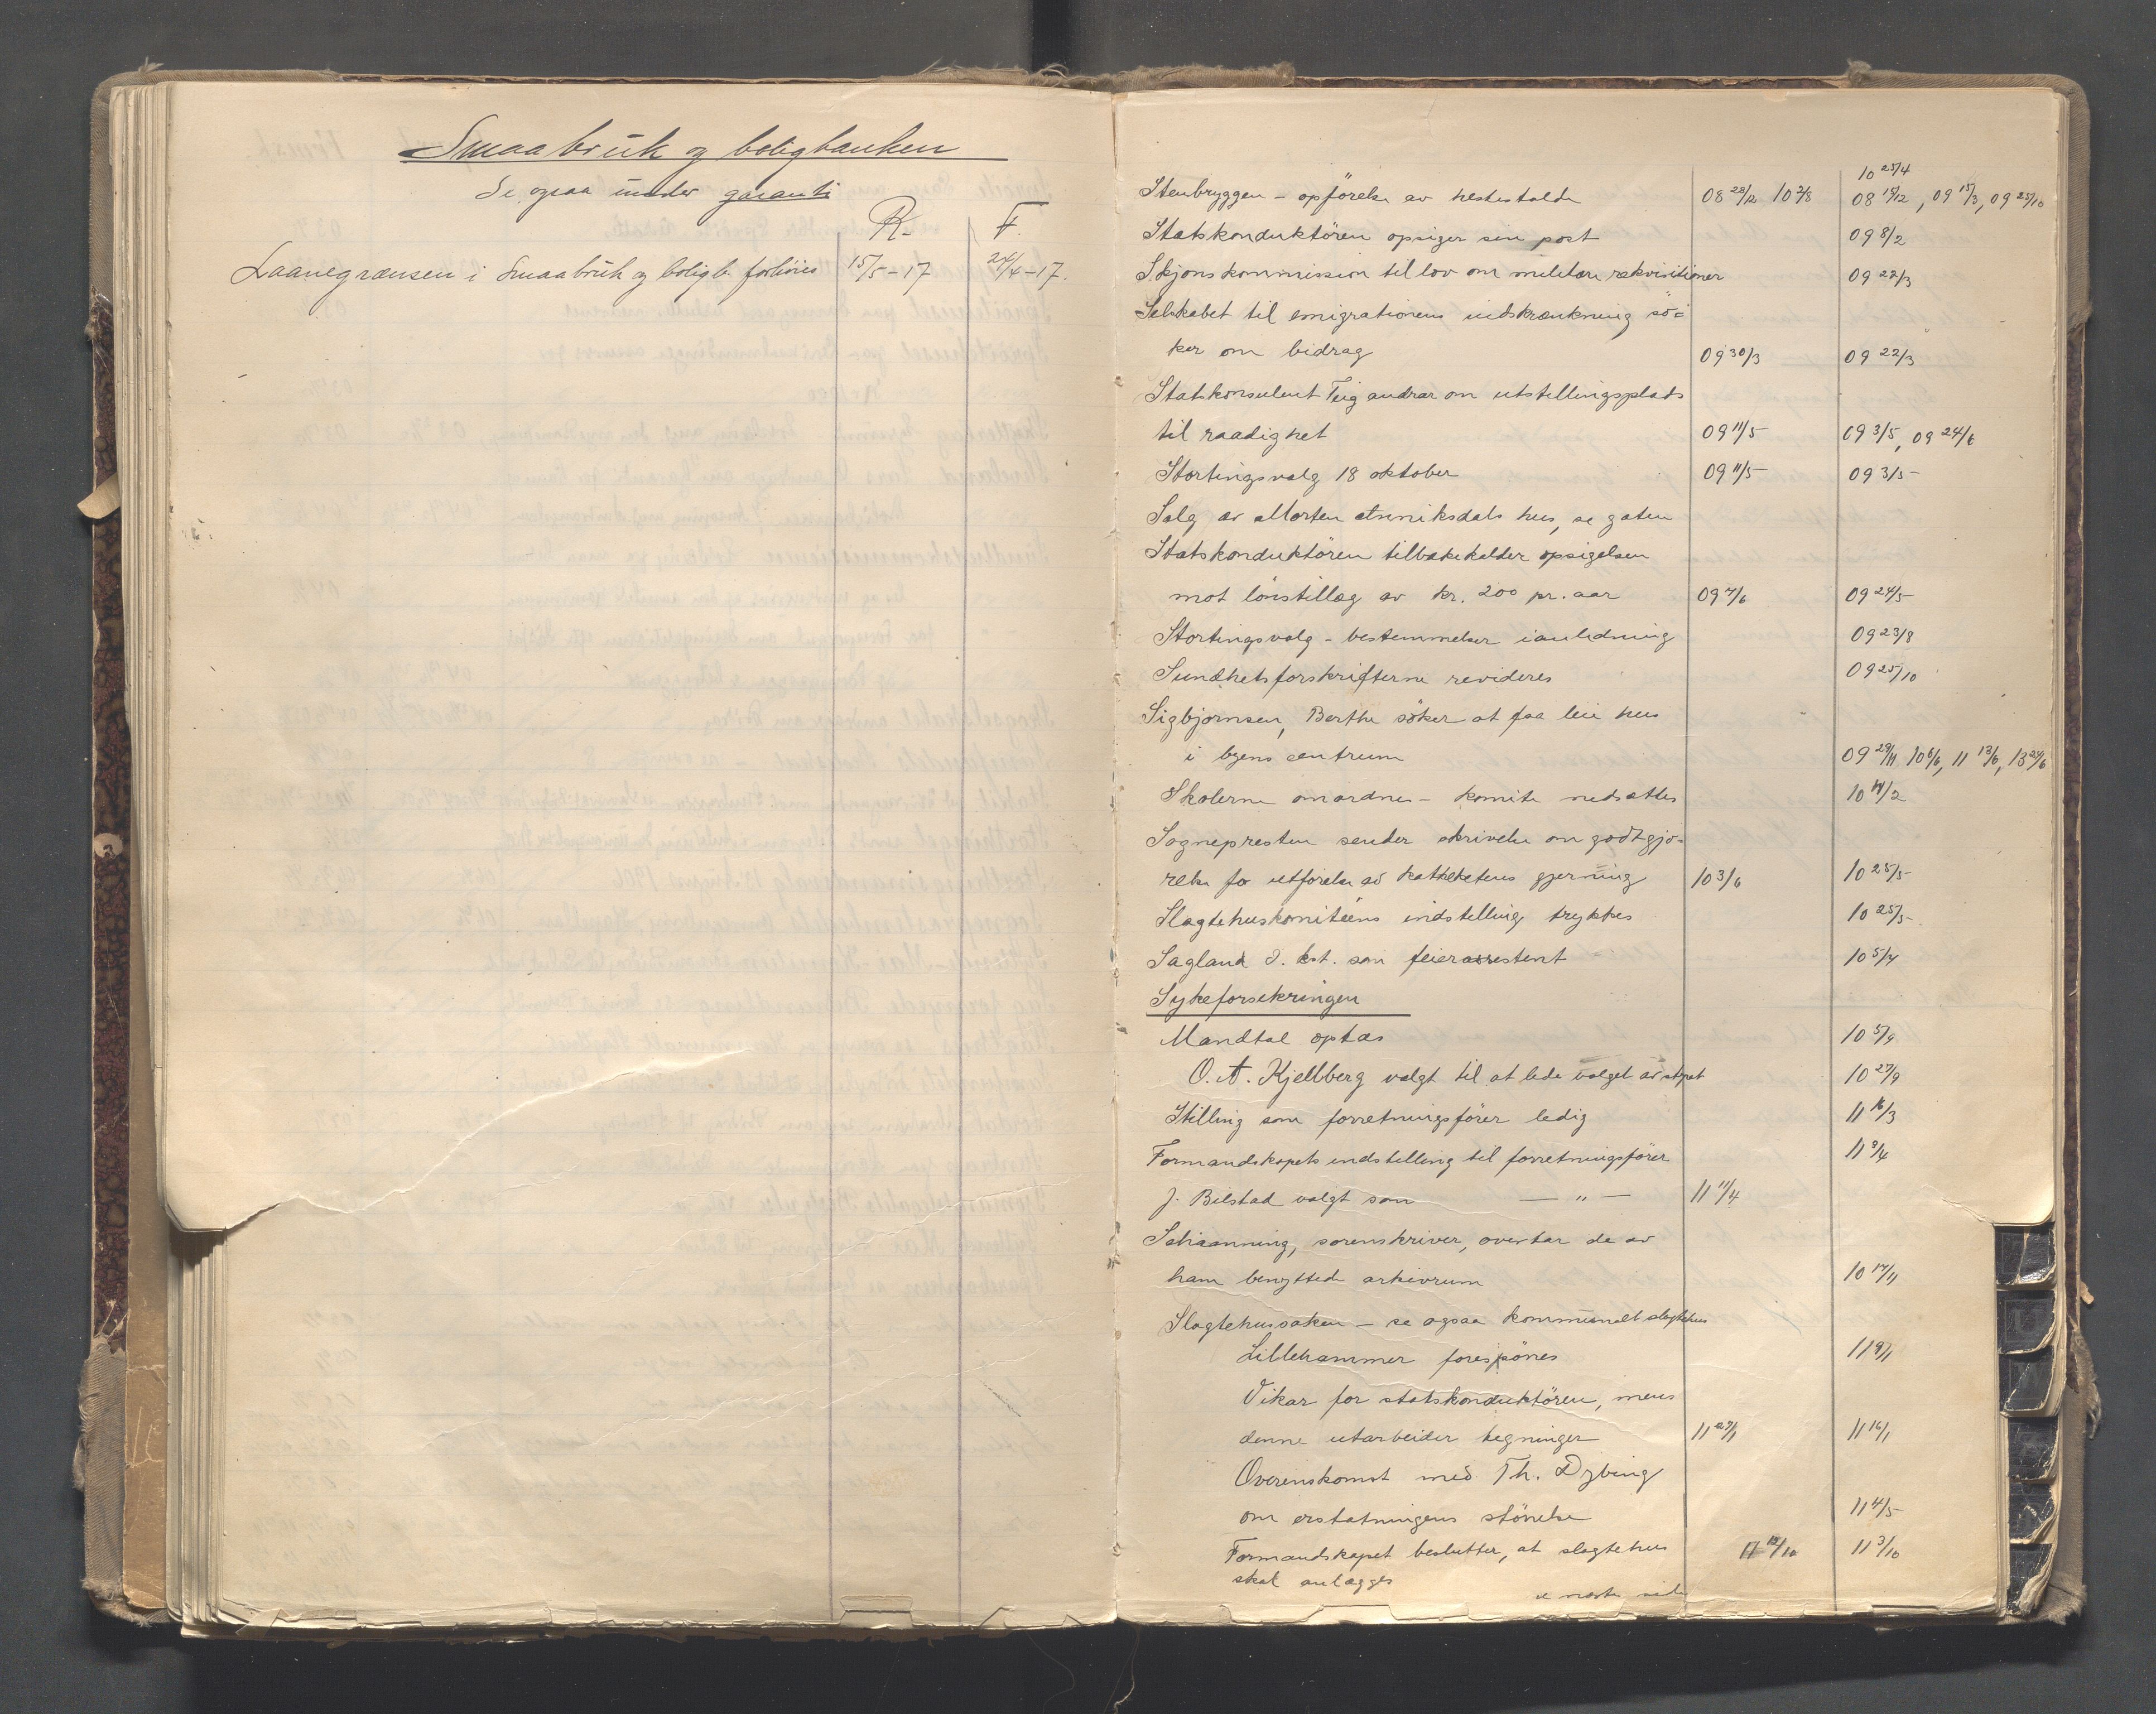 Smaabruk og boligbanken
Se ogsaa under garanti
R. F.
Laanegrænsen i Smaabruk og boligb. forhöies 15/5-17 24/4-17.
10 25/4
Stenbryggen - opförelse av hestestalde 08 28/12 10 2/8 08 18/12, 09 15/3, 09 25/10
Statskonduktören opsiger sin post 09 8/2
Skjönskommission til lov om militære rekvisitioner 09 22/3
Selskabet til emigrationens indskrænkning sö-
ker om bidrag 09 30/3 09 22/3
Statskonsulent Teig andrar om utstillingsplads
til raadighet 09 11/5 09 3/5, 09 24/6
Stortingsvalg 18 oktober 09 11/5 09 3/5
Salg av Morten hus, se gaten
Statskonduktören tilbakekalder opsigelsen
mot lönstillæg av kr. 200 pr. aar 09 7/6 09 24/5
Stortingsvalg - bestemmelser i anledning 09 23/8
Sundhetsforskrifterne revideres 09 25/10
Sigbjørnsen, Berthe söker at faa leie hus
i byens centrum 09 29/11 10 6/6, 11 13/6, 13 24/6
Skolerne omordnes - komite nedsættes 10 14/2
Sognepresten sender skrivelse om godtgjö-
relse for utförelse av kateketens gjerning 10 3/6 10 25/5
Slagtehuskomiteens indstilling trykkes 10 25/5
Sagland J. kst. som feierassistent 10 5/4
Sykeforsikringen
Mandtal optas 10 5/9
O. A. Kjellberg valgt til at lede valget av styret 10 27/9
Stilling som forretningsförer ledig 11 16/3
Formandskapets indstilling til forretningsförer 11 9/4
J. Bilstad valgt som — " — 11 11/4
Schaanning, sorenskriver, overtar de av
ham benyttede arkivrum 10 14/11
Slagtehussaken - se ogsaa kommunalt slagtehus
Lillehammer forespörres 11 9/1
Vikar for statskonduktören, mens
denne utarbeider tegninger 11 27/1 11 16/1
Overenskomst med Th. Dybing
om erstatningens störrelse 11 4/5
Formandskapet beslutter, at slagtehus 11 12/10 11 3/10
skal anlægges
se næste side